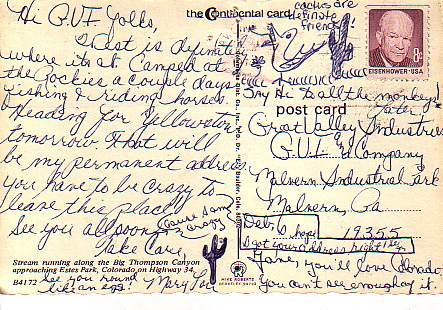 the Continental card
cactus are
definite
friends!
Hi G.V.I. Folks,
West is definitely
where its at. Camped at
the Rockies a couple days
fishing & riding horses.
Heading for Yellowstone
tomorrow. That will
be my permanent address.
You have to be crazy to
leave this place!
See you all soon
crazy
Take Care,
See you round
like an egg!
Mary Lou
EISENHOWER·USA
8c
Say Hi to all the monkeys!
Later
post card
Great Valley Industries
G.V.I. and Company
Malvern Industrial Park
Malvern, Pa
19355
Deb, I hope
I got your address right!
Jane, you'll love Colorado,
you can't see enough of it.
Stream running along the Big Thompson Canyon
approaching Estes Park, Colorado, on Highway 34.
B4172
MIKE ROBERTS
BERKELEY 94710